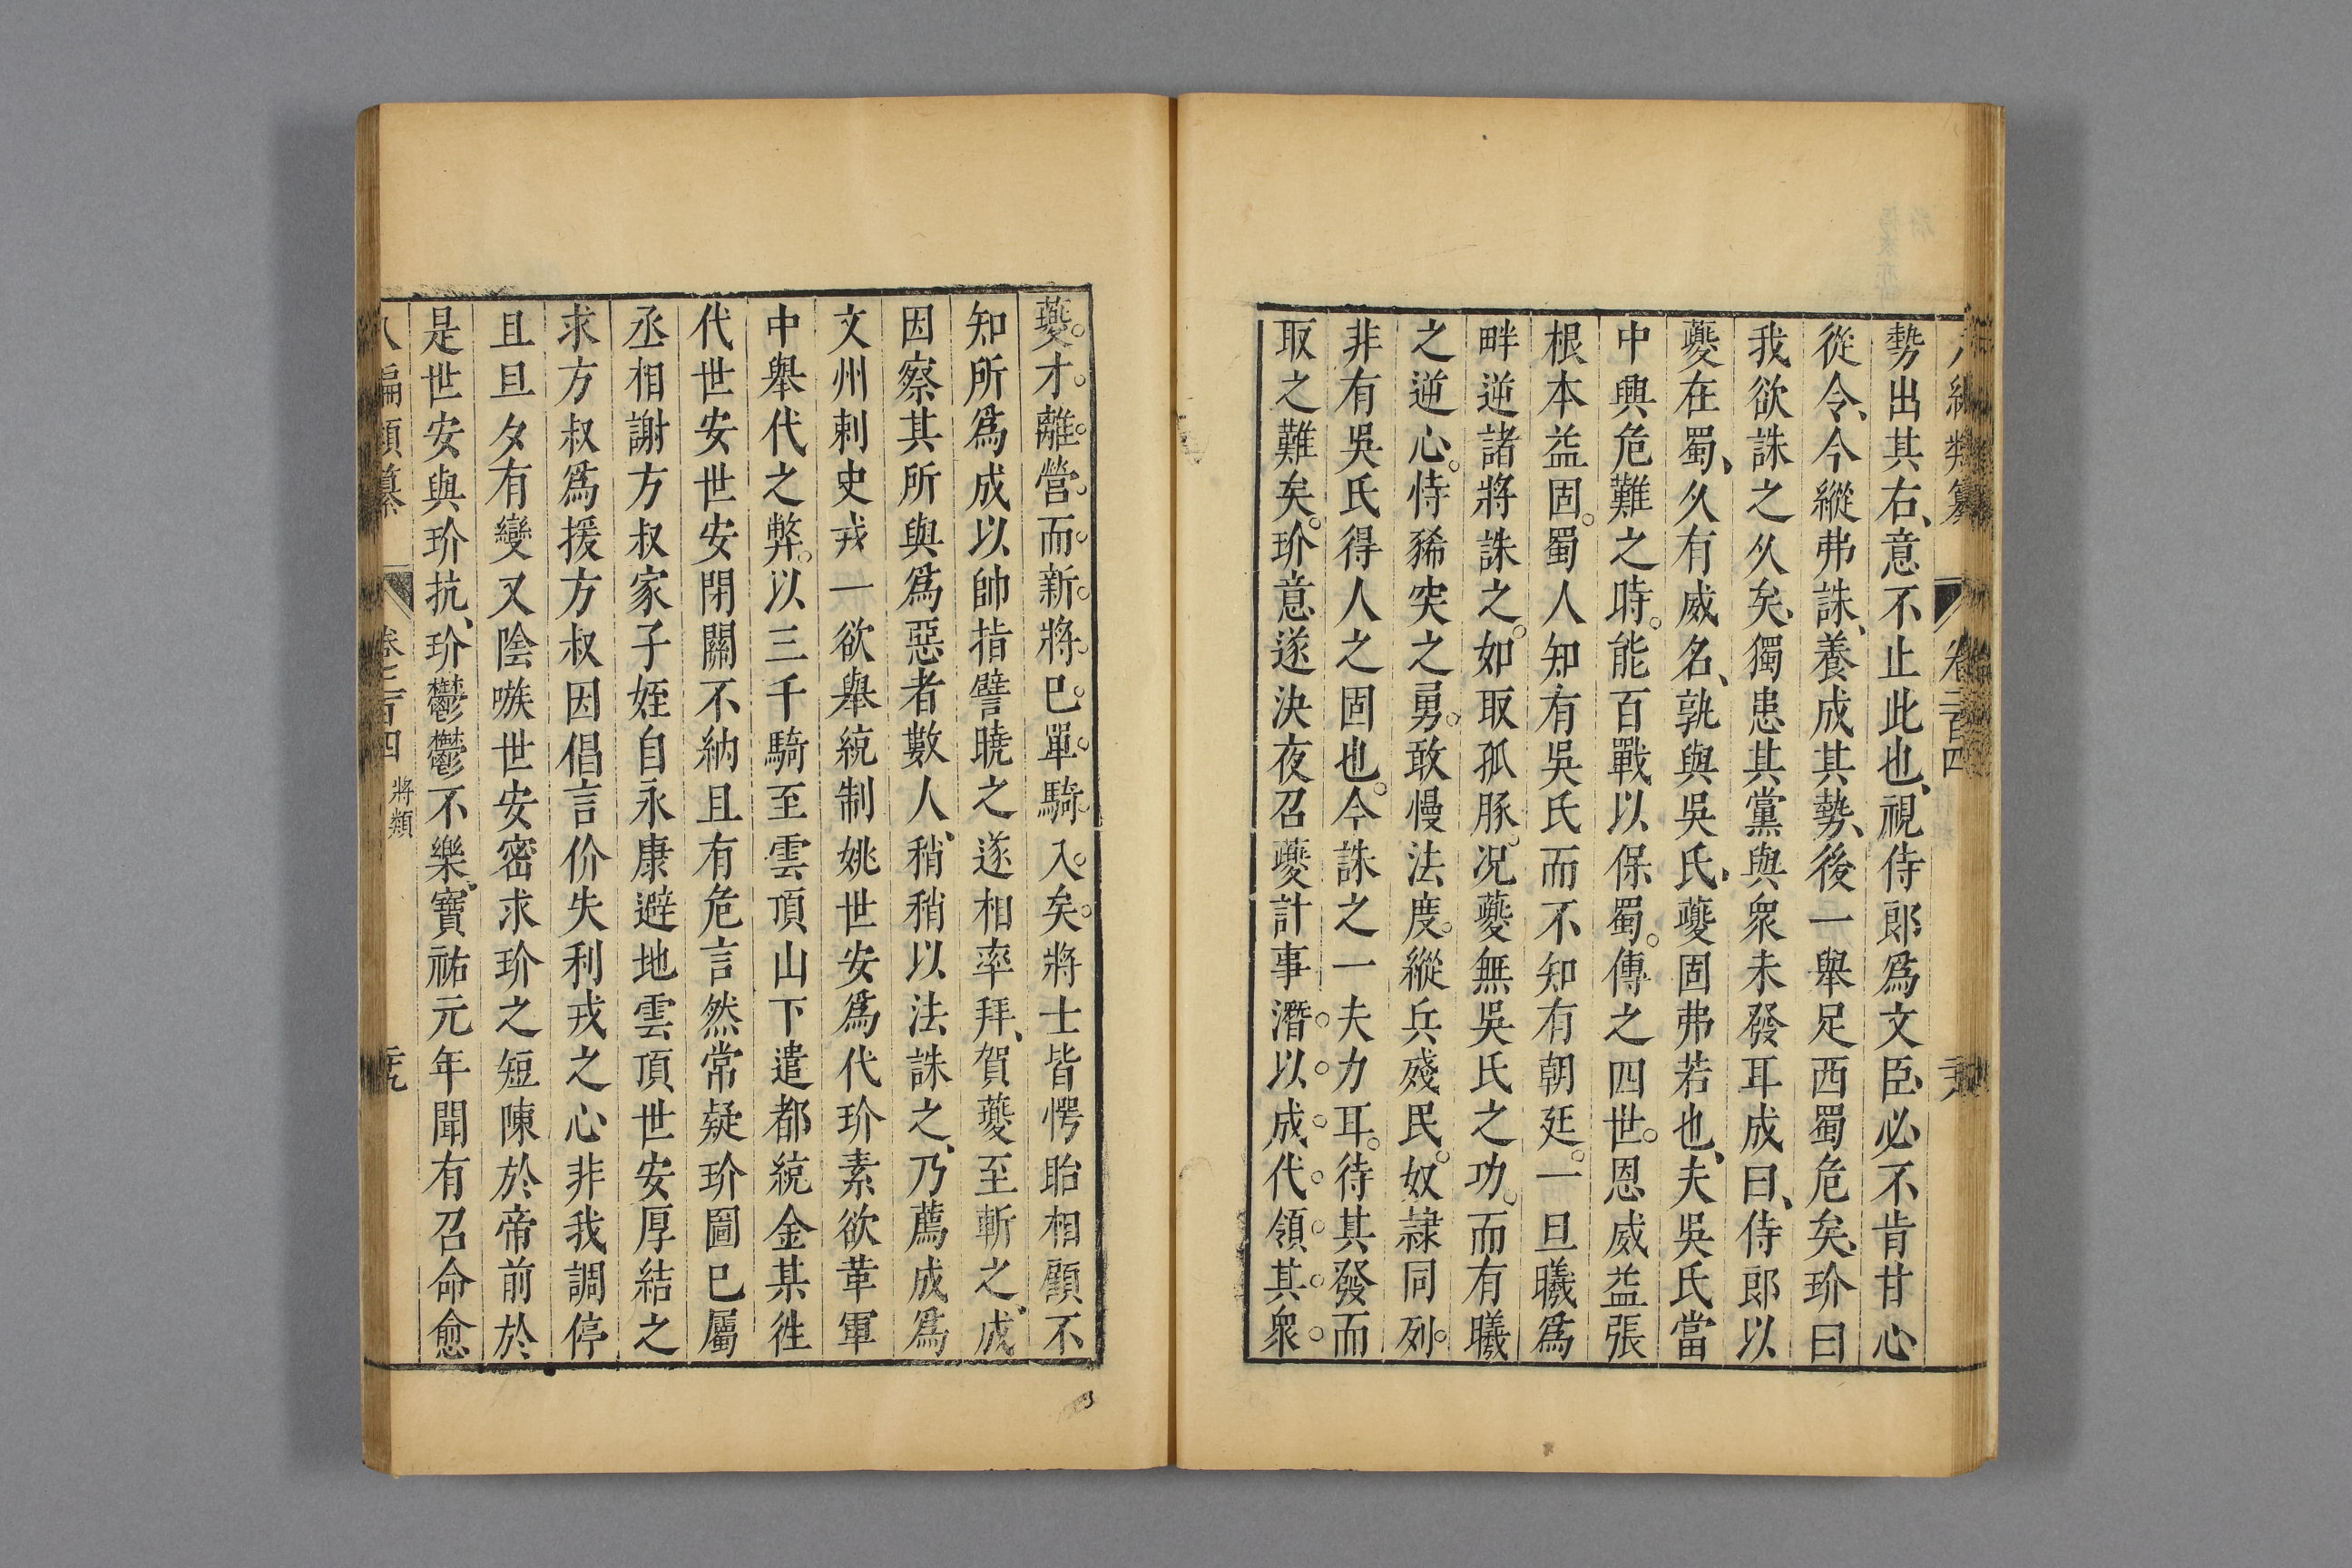 勢出其右、意不止此也、視侍郎爲文臣、必不肯甘心
從令、今縱弗誅、養成其勢、後一舉足、西蜀危矣、玠曰
我欲誅之久矣、獨患其黨與眾未發耳、成曰、侍郎以
夔在蜀、久有威名、孰與吳氏、夔固弗若也、夫吳氏當
中興危難之時。能百戰以保蜀。傳之四世。恩威益張
根本益固。蜀人知有吳氏而不知有朝廷。一旦曦爲
畔逆諸將誅之。如取孤豚。况夔無吳氏之功。而有曦
之逆心。恃豨突之勇。敢慢法度。縱兵殘民。奴隸同列。
非有吳氏得人之固也。今誅之一夫力耳。待其發而
取之難矣。玠意遂決夜召夔計事潛。以。成。代。領。其。眾。
夔。才。離。營。而。新。將。已。單。騎。入。矣。將士皆愕眙相顧不
知所爲成以帥指譬曉之遂相率拜、賀夔至斬之。成
因察其所與爲惡者數人、稍稍以法誅之、乃薦成爲
文州刺史戎一欲舉統制姚世安爲代玠素欲革軍
中舉代之弊。以三千騎至雲頂山下遣都統金某往
代世安世安閉關不納且有危言然常疑玠圖已屬
丞相謝方叔家子姪自永康避地雲頂世安厚結之
求方叔爲援方叔因倡言价失利戎之心非我調停
且旦夕有變又陰嗾世安密求玠之短陳於帝前於
是世安與玠抗、玠鬱鬱不樂。寶祐元年聞有召命愈
八編類纂 卷二百四 將類 二十九